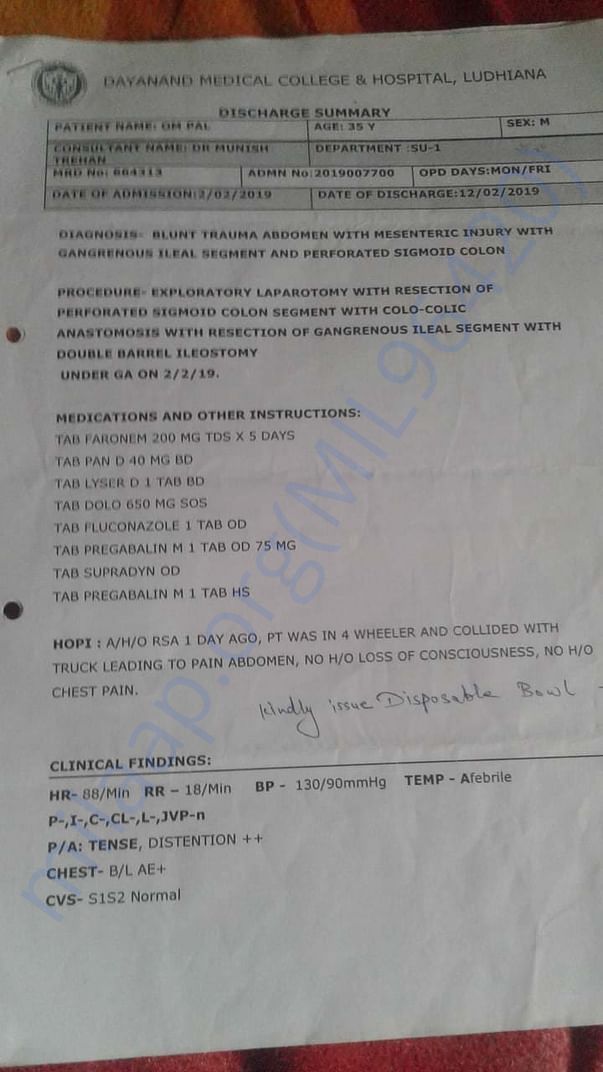 DAYANAND MEDICAL COLLEGE & HOSPITAL, LUDHIANA
DISCHARGE SUMMARY
PATIENT NAME: OM PAL AGE: 35 Y SEX: M
CONSULTANT NAME: DR MUNISH TREHAN DEPARTMENT :SU-1
MRD No: 664313 ADMN No:2019007700 OPD DAYS:MON/FRI
DATE OF ADMISSION:2/02/2019 DATE OF DISCHARGE:12/02/2019
DIAGNOSIS- BLUNT TRAUMA ABDOMEN WITH MESENTERIC INJURY WITH
GANGRENOUS ILEAL SEGMENT AND PERFORATED SIGMOID COLON
PROCEDURE- EXPLORATORY LAPAROTOMY WITH RESECTION OF
PERFORATED SIGMOID COLON SEGMENT WITH COLO-COLIC
ANASTOMOSIS WITH RESECTION OF GANGRENOUS ILEAL SEGMENT WITH
DOUBLE BARREL ILEOSTOMY
UNDER GA ON 2/2/19.
MEDICATIONS AND OTHER INSTRUCTIONS:
TAB FARONEM 200 MG TDS X 5 DAYS
TAB PAN D 40 MG BD
TAB LYSER D 1 TAB BD
TAB DOLO 650 MG SOS
TAB FLUCONAZOLE 1 TAB OD
TAB PREGABALIN M 1 TAB OD 75 MG
TAB SUPRADYN OD
TAB PREGABALIN M 1 TAB HS
HOPI : A/H/O RSA 1 DAY AGO, PT WAS IN 4 WHEELER AND COLLIDED WITH
TRUCK LEADING TO PAIN ABDOMEN, NO H/O LOSS OF CONSCIOUSNESS, NO H/O
CHEST PAIN.
Kindly issue Disposable Bowl -
CLINICAL FINDINGS:
HR- 88/Min RR – 18/Min BP - 130/90mmHg TEMP - Afebrile
P-,I-,C-,CL-,L-,JVP-n
P/A: TENSE, DISTENTION ++
CHEST- B/L AE+
CVS- S1S2 Normal